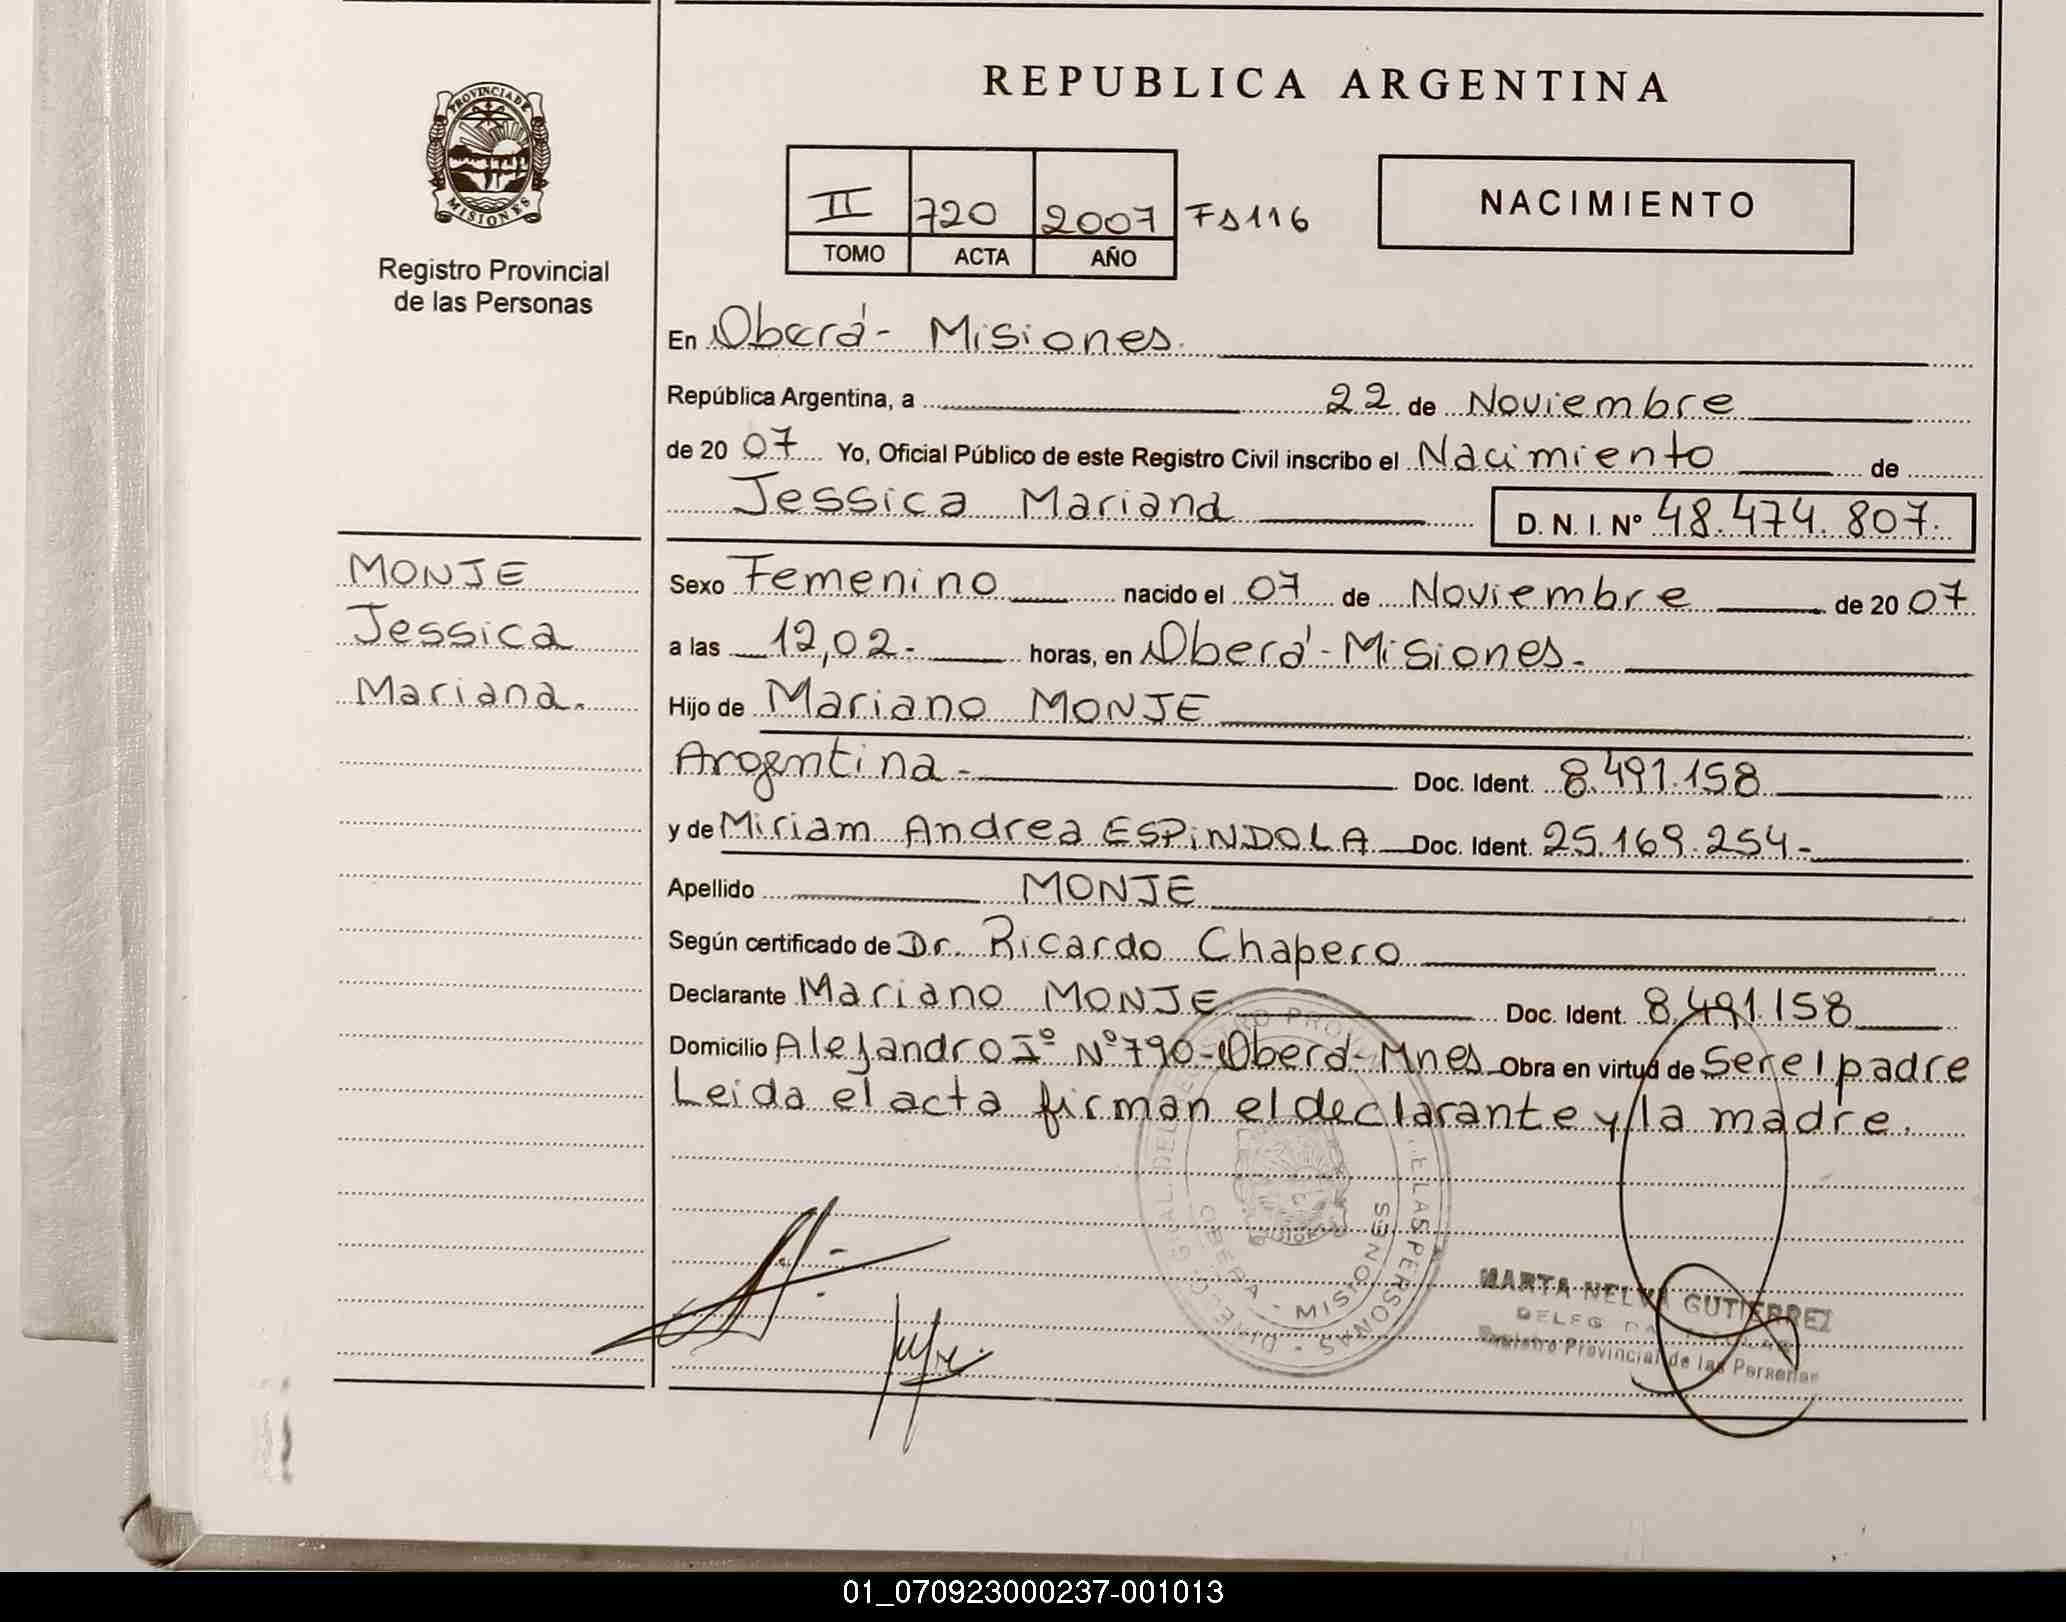 REPUBLICA ARGENTINA
PROVINCIA DE
MISIONES
Registro Provincial
de las Personas
II 720 2007 Fs116
TOMO ACTA AÑO
NACIMIENTO
En Oberá - Misiones.
República Argentina, a 22 de Noviembre
de 20 07 Yo, Oficial Público de este Registro Civil inscribo el Nacimiento de
Jessica Mariana D. N. I. Nº 48.474.807.
MONJE
Jessica
Mariana.
Sexo Femenino nacido el 07 de Noviembre de 20 07
a las 12,02.- horas, en Oberá - Misiones.-
Hijo de Mariano MONJE
Argentina - Doc. Ident. 8.491.158
y de Miriam Andrea ESPiNDOLA Doc. Ident. 25.169.254-
Apellido MONJE
Según certificado de Dr. Ricardo Chapero
Declarante Mariano MONJE Doc. Ident. 8.491.158
Domicilio Alejandro Iº Nº 790-Oberá-Mnes Obra en virtud de Ser el padre
Leida el acta firman el declarante y la madre.
OBERA - MISIONES
DE LAS PERSONAS
MARTA NELVA GUTIERREZ
Registro Provincial de las Personas
01_070923000237-001013